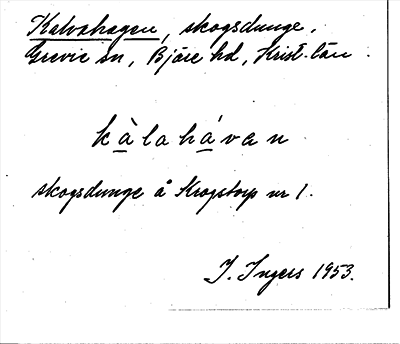 Kalvahagen, skogsdunge,
Grevie sn, Bjäre hd, Krist. län.
kàlahávan
skogsdunge å Krogstorp nr 1.
I. Ingers 1953.